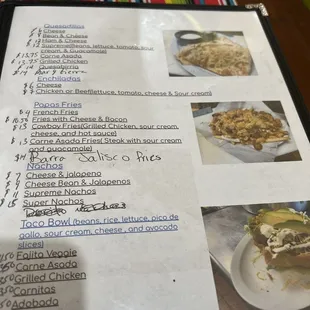 Quesadillas
Cheese
Bean & Cheese
Ham & Cheese
Supreme(Beans, lettuce, tomato, sour
cream, & Guacamole)
$ 13.75 Carne Asada
$ 13.75 Grilled Chicken
Quesabirria
$14
Enchiladas
Cheese
Chicken or Beef(lettuce, tomato, cheese & Sour cream)
Papas Fries
$4 French Fries
Fries with Cheese & Bacon
$ 13 Cowboy Fries(Grilled Chicken, sour cream,
cheese, and hot sauce)
$ 13 Carne Asada Fries( Steak with sour cream
and guacamole)
Barra Jalisco fries
Nachos
$ 7 Cheese & jalapeno
$ 9 Cheese Bean & Jalapenos
$ 11 Supreme Nachos
$ 15 Super Nachos
Taco Bowl (beans, rice, lettuce, pico de
gallo, sour cream, cheese, and avocado
slices)
Fajita Veggie
Carne Asada
Grilled Chicken
Carnitas
Adobada